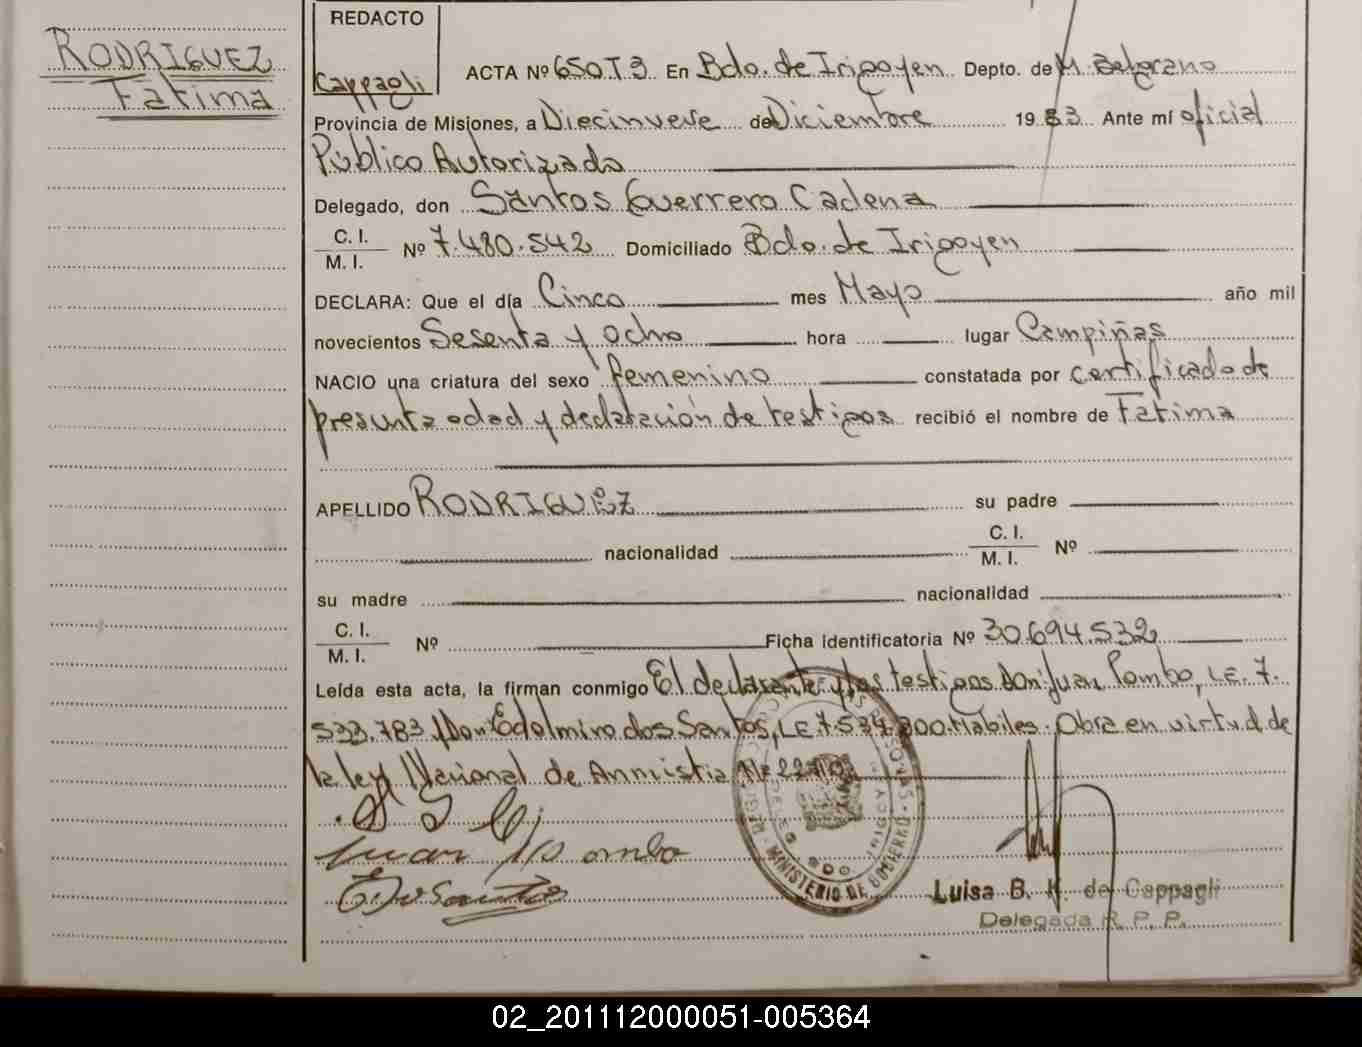 RODRIGUEZ
Fatima
REDACTO
Cappagli
ACTA Nº 650 T3 En Bdo. de Irigoyen Depto. de M. Belgrano
Provincia de Misiones, a Diecinueve de Diciembre 1983 Ante mí oficial
Público Autorizado
Delegado, don Santos Guerrero Cadena
C. I.
M. I.
Nº 7.480.542 Domiciliado Bdo. de Irigoyen
DECLARA: Que el día Cinco mes Mayo año mil
novecientos Sesenta y ocho hora lugar Campiñas
NACIO una criatura del sexo femenino constatada por certificado de
presunta edad y declaración de testigos recibió el nombre de Fatima
APELLIDO RODRIGUEZ su padre
nacionalidad C. I.
M. I.
Nº
su madre nacionalidad
C. I.
M. I.
Nº Ficha identificatoria Nº 30.694.532
Leída esta acta, la firman conmigo El declarante y los testigos don Juan Pombo, LE. 7.
533.783 y Don Edelmiro dos Santos, LE 7.534.800. Habiles. Obra en virtud de
la ley Nacional de Amnistia Nº
Juan Pombo
MINISTERIO DE GOBIERNO
Luisa B. K. de Cappagli
Delegada R. P. P.
02_201112000051-005364